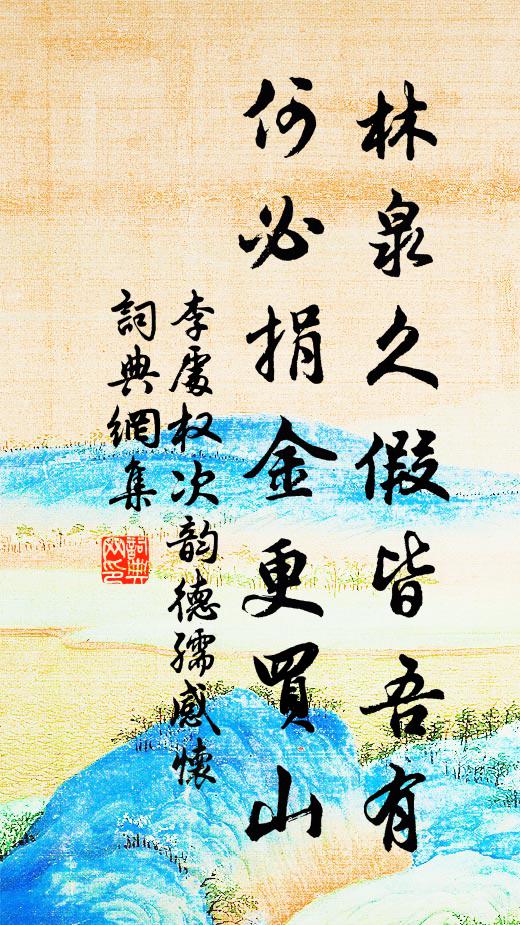 林泉久假皆吾有
何必捐金更買山
李處权次韵德孺感懷
詞典網集
詞典網印